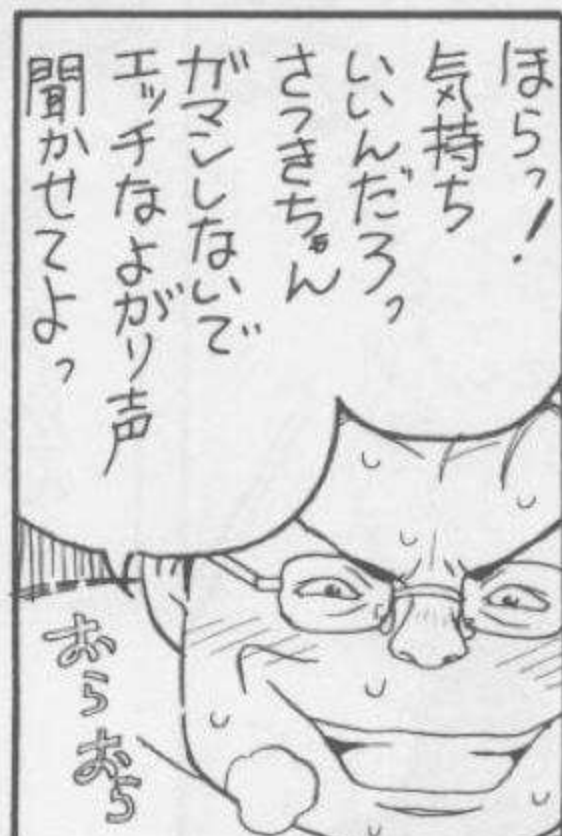 ほらっ！
気持ち
いいんだろっ
さつきちゃん
ガマンしないで
エッチなよがり声
聞かせてよっ
おらおら